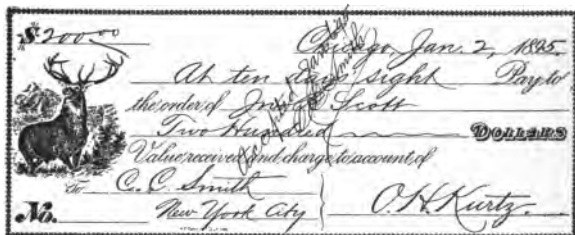 $200.00
Chicago, Jan. 2, 1895.
At ten days sight Pay to
the order of Jno. Scott
Two Hundred DOLLARS
Value received and charge to account of
To C. C. Smith
No. New York City
O. H. Kurtz.
Accepted Jan.
Smith